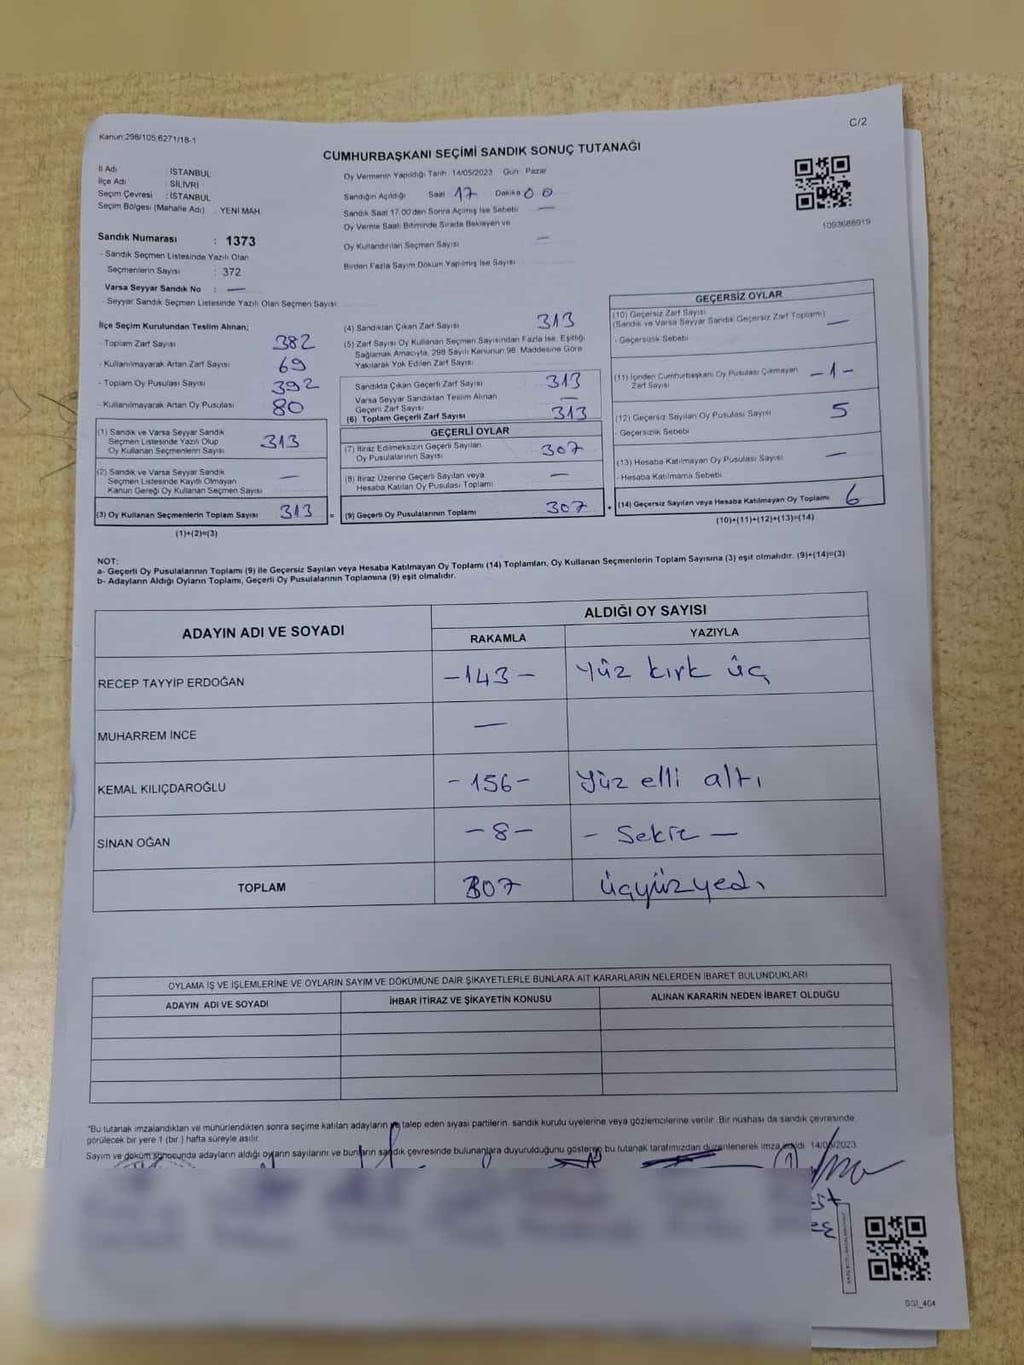 Kanun:298/105;6271/18-1
C/2
CUMHURBAŞKANI SEÇİMİ SANDIK SONUÇ TUTANAĞI
İl Adı : İSTANBUL
İlçe Adı : SİLİVRİ
Seçim Çevresi : İSTANBUL
Seçim Bölgesi (Mahalle Adı) : YENİ MAH.
Sandık Numarası : 1373
- Sandık Seçmen Listesinde Yazılı Olan
Seçmenlerin Sayısı : 372
Varsa Seyyar Sandık No : —
- Seyyar Sandık Seçmen Listesinde Yazılı Olan Seçmen Sayısı:
Oy Vermenin Yapıldığı Tarih: 14/05/2023 Gün: Pazar
Sandığın Açıldığı Saat 17 Dakika 00
Sandık Saat 17.00'den Sonra Açılmış İse Sebebi —
Oy Verme Saati Bitiminde Sırada Bekleyen ve
Oy Kullandırılan Seçmen Sayısı —
Birden Fazla Sayım Döküm Yapılmış İse Sayısı
1093688919
İlçe Seçim Kurulundan Teslim Alınan;
- Toplam Zarf Sayısı 382
- Kullanılmayarak Artan Zarf Sayısı 69
- Toplam Oy Pusulası Sayısı 392
- Kullanılmayarak Artan Oy Pusulası 80
(1) Sandık ve Varsa Seyyar Sandık
Seçmen Listesinde Yazılı Olup
Oy Kullanan Seçmenlerin Sayısı 313
(2) Sandık ve Varsa Seyyar Sandık
Seçmen Listesinde Kayıtlı Olmayan
Kanun Gereği Oy Kullanan Seçmen Sayısı —
(3) Oy Kullanan Seçmenlerin Toplam Sayısı 313
(1)+(2)=(3)
(4) Sandıktan Çıkan Zarf Sayısı 313
(5) Zarf Sayısı Oy Kullanan Seçmen Sayısından Fazla İse; Eşitliği
Sağlamak Amacıyla, 298 Sayılı Kanunun 98. Maddesine Göre
Yakılarak Yok Edilen Zarf Sayısı
Sandıkta Çıkan Geçerli Zarf Sayısı 313
Varsa Seyyar Sandıktan Teslim Alınan
Geçerli Zarf Sayısı —
(6) Toplam Geçerli Zarf Sayısı 313
GEÇERLİ OYLAR
(7) İtiraz Edilmeksizin Geçerli Sayılan
Oy Pusulalarının Sayısı 307
(8) İtiraz Üzerine Geçerli Sayılan veya
Hesaba Katılan Oy Pusulası Toplamı —
(9) Geçerli Oy Pusulalarının Toplamı 307
GEÇERSİZ OYLAR
(10) Geçersiz Zarf Sayısı
(Sandık ve Varsa Seyyar Sandık Geçersiz Zarf Toplamı) —
- Geçersizlik Sebebi
(11) İçinden Cumhurbaşkanı Oy Pusulası Çıkmayan
Zarf Sayısı -1-
(12) Geçersiz Sayılan Oy Pusulası Sayısı 5
- Geçersizlik Sebebi
(13) Hesaba Katılmayan Oy Pusulası Sayısı —
- Hesaba Katılmama Sebebi
(14) Geçersiz Sayılan veya Hesaba Katılmayan Oy Toplamı 6
(10)+(11)+(12)+(13)=(14)
NOT:
a- Geçerli Oy Pusulalarının Toplamı (9) ile Geçersiz Sayılan veya Hesaba Katılmayan Oy Toplamı (14) Toplamları, Oy Kullanan Seçmenlerin Toplam Sayısına (3) eşit olmalıdır. (9)+(14)=(3)
b- Adayların Aldığı Oyların Toplamı, Geçerli Oy Pusulalarının Toplamına (9) eşit olmalıdır.
ADAYIN ADI VE SOYADI
ALDIĞI OY SAYISI
RAKAMLA YAZIYLA
RECEP TAYYİP ERDOĞAN -143- Yüz kırk üç
MUHARREM İNCE —
KEMAL KILIÇDAROĞLU -156- Yüz elli altı
SİNAN OĞAN -8- - Sekiz -
TOPLAM 307 Üçyüzyedi
OYLAMA İŞ VE İŞLEMLERİNE VE OYLARIN SAYIM VE DÖKÜMÜNE DAİR ŞİKAYETLERLE BUNLARA AİT KARARLARIN NELERDEN İBARET BULUNDUKLARI
ADAYIN ADI VE SOYADI İHBAR İTİRAZ VE ŞİKAYETİN KONUSU ALINAN KARARIN NEDEN İBARET OLDUĞU
"Bu tutanak imzalandıktan ve mühürlendikten sonra seçime katılan adayların ve talep eden siyasi partilerin sandık kurulu üyelerine veya gözlemcilerine verilir. Bir nüshası da sandık çevresinde
görülecek bir yere 1 (bir) hafta süreyle asılır.
Sayım ve döküm sonucunda adayların aldığı oyların sayılarını ve bunların sandık çevresinde bulunanlara duyurulduğunu gösteren bu tutanak tarafımızdan düzenlenerek imza edildi. 14/05/2023